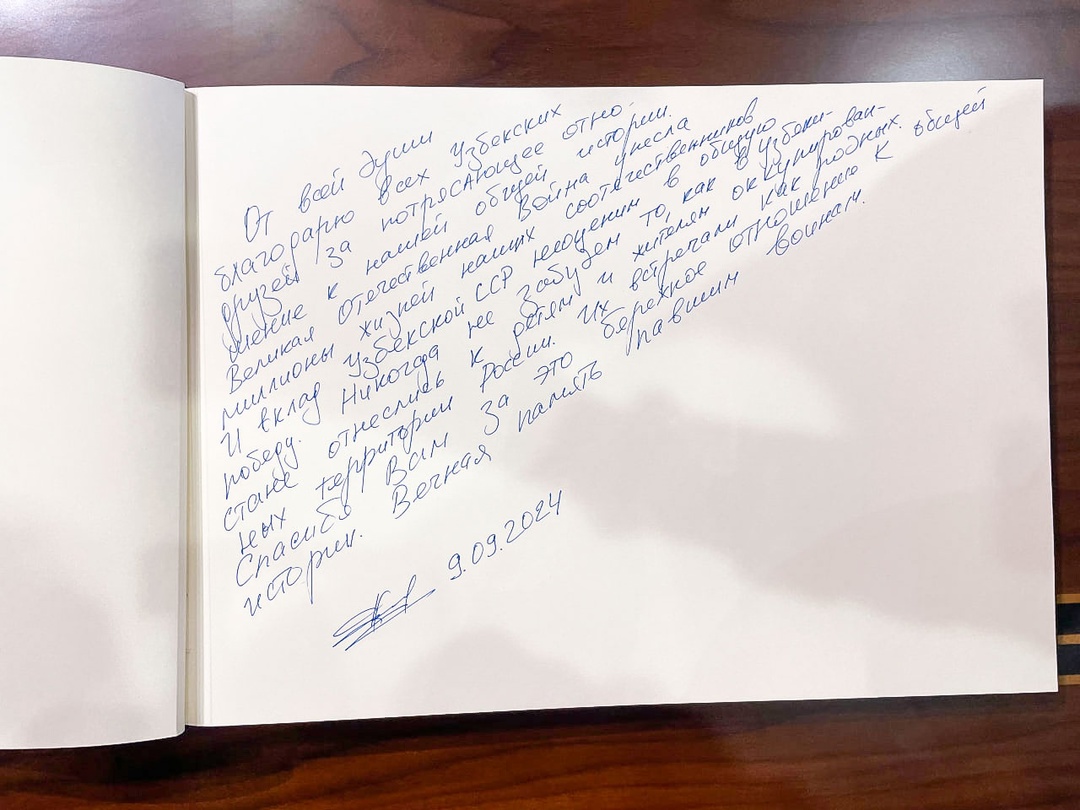 От всей души
благодарю всех узбекских
друзей за потрясающее отно-
шение к нашей общей истории.
Великая Отечественная Война унесла
миллионы жизней наших соотечественников
И вклад Узбекской ССР неоценим в общую
победу. Никогда не забудем то, как в Узбеки-
стане отнеслись к детям и жителям оккупирован-
ных территорий России. Их встречали как родных.
Спасибо Вам за это бережное отношение к общей
истории. Вечная память павшим воинам.
9.09.2024